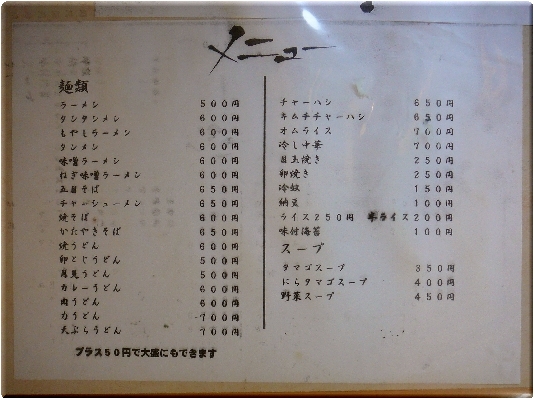 メニュー
麺類
ラーメン ５００円
タンタンメン ６００円
もやしラーメン ６００円
タンメン ６００円
味噌ラーメン ６００円
ねぎ味噌ラーメン ６５０円
五目そば ６５０円
チャーシューメン ６５０円
焼そば ６００円
かたやきそば ６５０円
焼うどん ６００円
卵とじうどん ５００円
月見うどん ５００円
カレーうどん ６００円
肉うどん ６００円
力うどん ７００円
天ぷらうどん ７００円
プラス５０円で大盛にもできます
チャーハン ６５０円
キムチチャーハン ６５０円
オムライス ７００円
冷し中華 ７００円
目玉焼き ２５０円
卵焼き ２５０円
冷奴 １５０円
納豆 １００円
ライス２５０円 半ライス２００円
味付海苔 １００円
スープ
タマゴスープ ３５０円
にらタマゴスープ ４００円
野菜スープ ４５０円